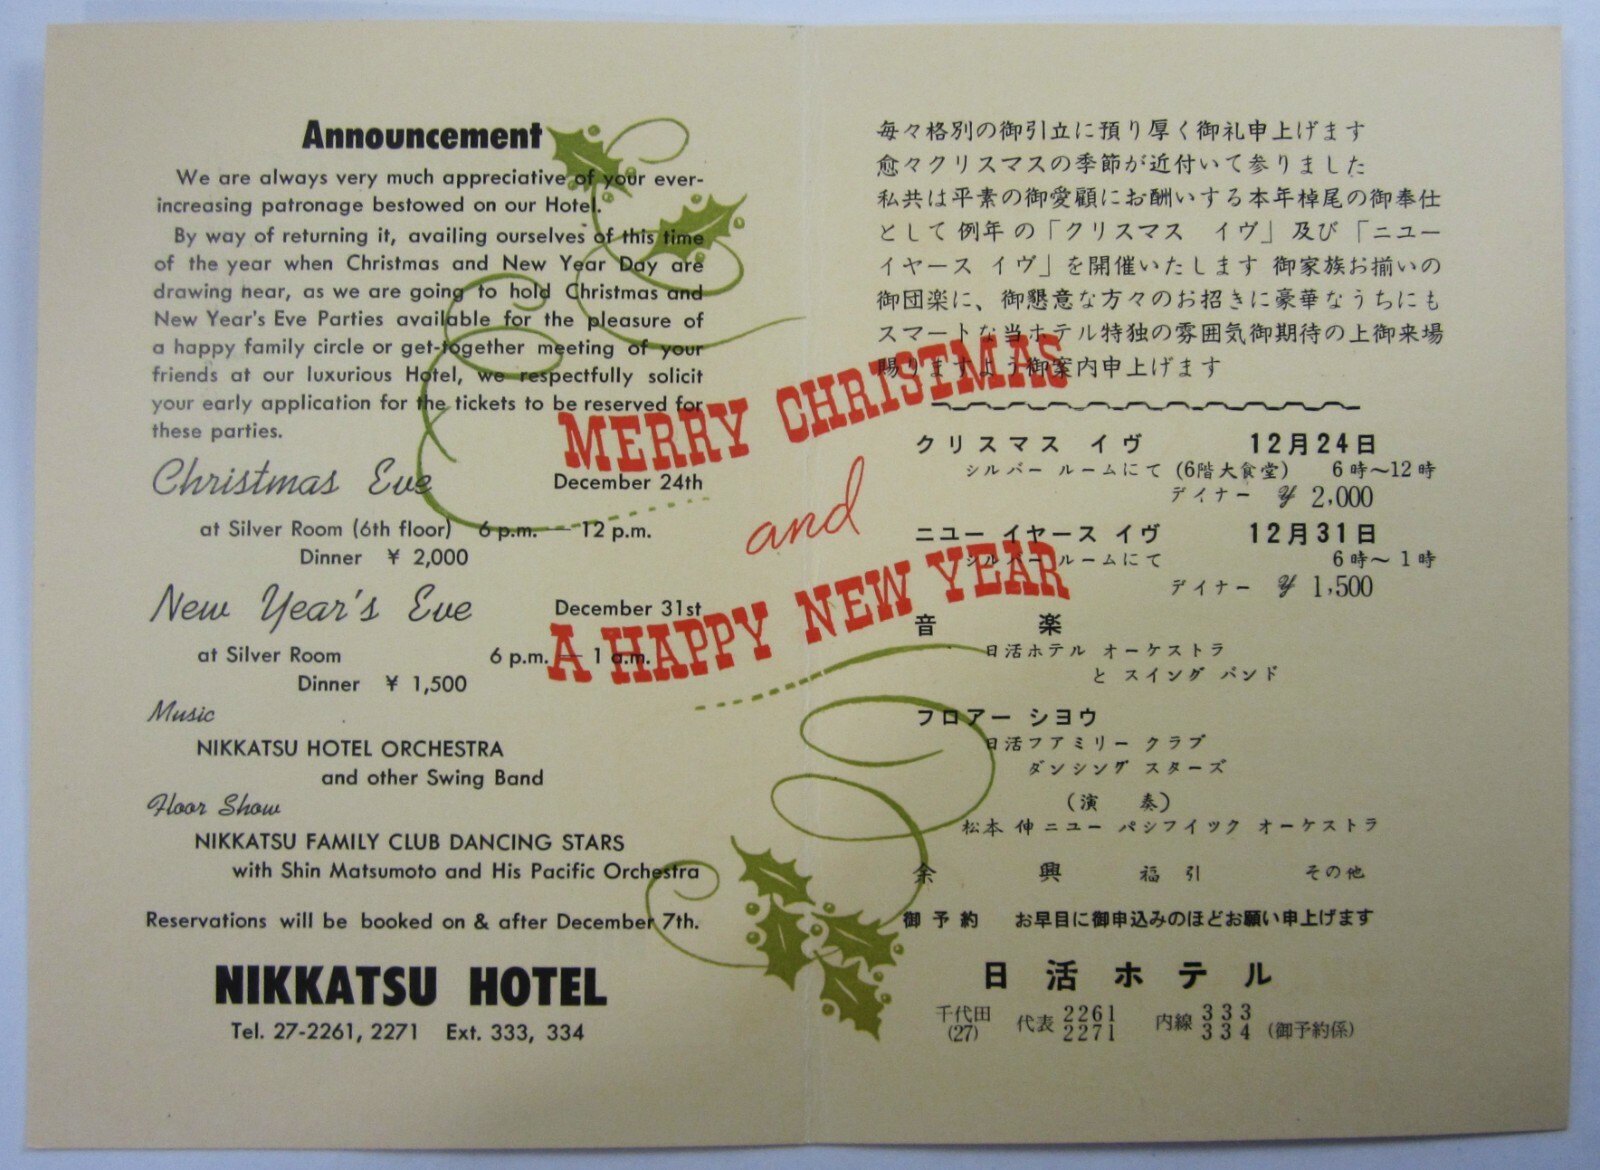 Announcement
We are always very much appreciative of your ever-
increasing patronage bestowed on our Hotel.
By way of returning it, availing ourselves of this time
of the year when Christmas and New Year Day are
drawing near, as we are going to hold Christmas and
New Year's Eve Parties available for the pleasure of
a happy family circle or get-together meeting of your
friends at our luxurious Hotel, we respectfully solicit
your early application for the tickets to be reserved for
these parties.
Christmas Eve December 24th
at Silver Room (6th floor) 6 p.m. — 12 p.m.
Dinner ¥ 2,000
New Year's Eve December 31st
at Silver Room 6 p.m. — 1 a.m.
Dinner ¥ 1,500
Music
NIKKATSU HOTEL ORCHESTRA
and other Swing Band
Floor Show
NIKKATSU FAMILY CLUB DANCING STARS
with Shin Matsumoto and His Pacific Orchestra
Reservations will be booked on & after December 7th.
NIKKATSU HOTEL
Tel. 27-2261, 2271 Ext. 333, 334
MERRY CHRISTMAS
and
A HAPPY NEW YEAR
毎々格別の御引立に預り厚く御礼申上げます
愈々クリスマスの季節が近付いて参りました
私共は平素の御愛顧にお酬いする本年棹尾の御奉仕
として例年の「クリスマス イヴ」及び「ニユー
イヤース イヴ」を開催いたします 御家族お揃いの
御団楽に、御懇意な方々のお招きに豪華なうちにも
スマートな当ホテル特独の雰囲気御期待の上御来場
賜りますよう御案内申上げます
クリスマス イヴ 12月24日
シルバー ルームにて (6階大食堂) 6時〜12時
デイナー ¥ 2,000
ニユー イヤース イヴ 12月31日
シルバー ルームにて 6時〜1時
デイナー ¥ 1,500
音 楽
日活ホテル オーケストラ
と スイング バンド
フロアー シヨウ
日活フアミリー クラブ
ダンシング スターズ
(演 奏)
松本 伸 ニユー パシフイツク オーケストラ
余 興 福引 その他
御予約 お早目に御申込みのほどお願い申上げます
日活ホテル
千代田 (27) 代表 2261 2271 内線 333 334 (御予約係)